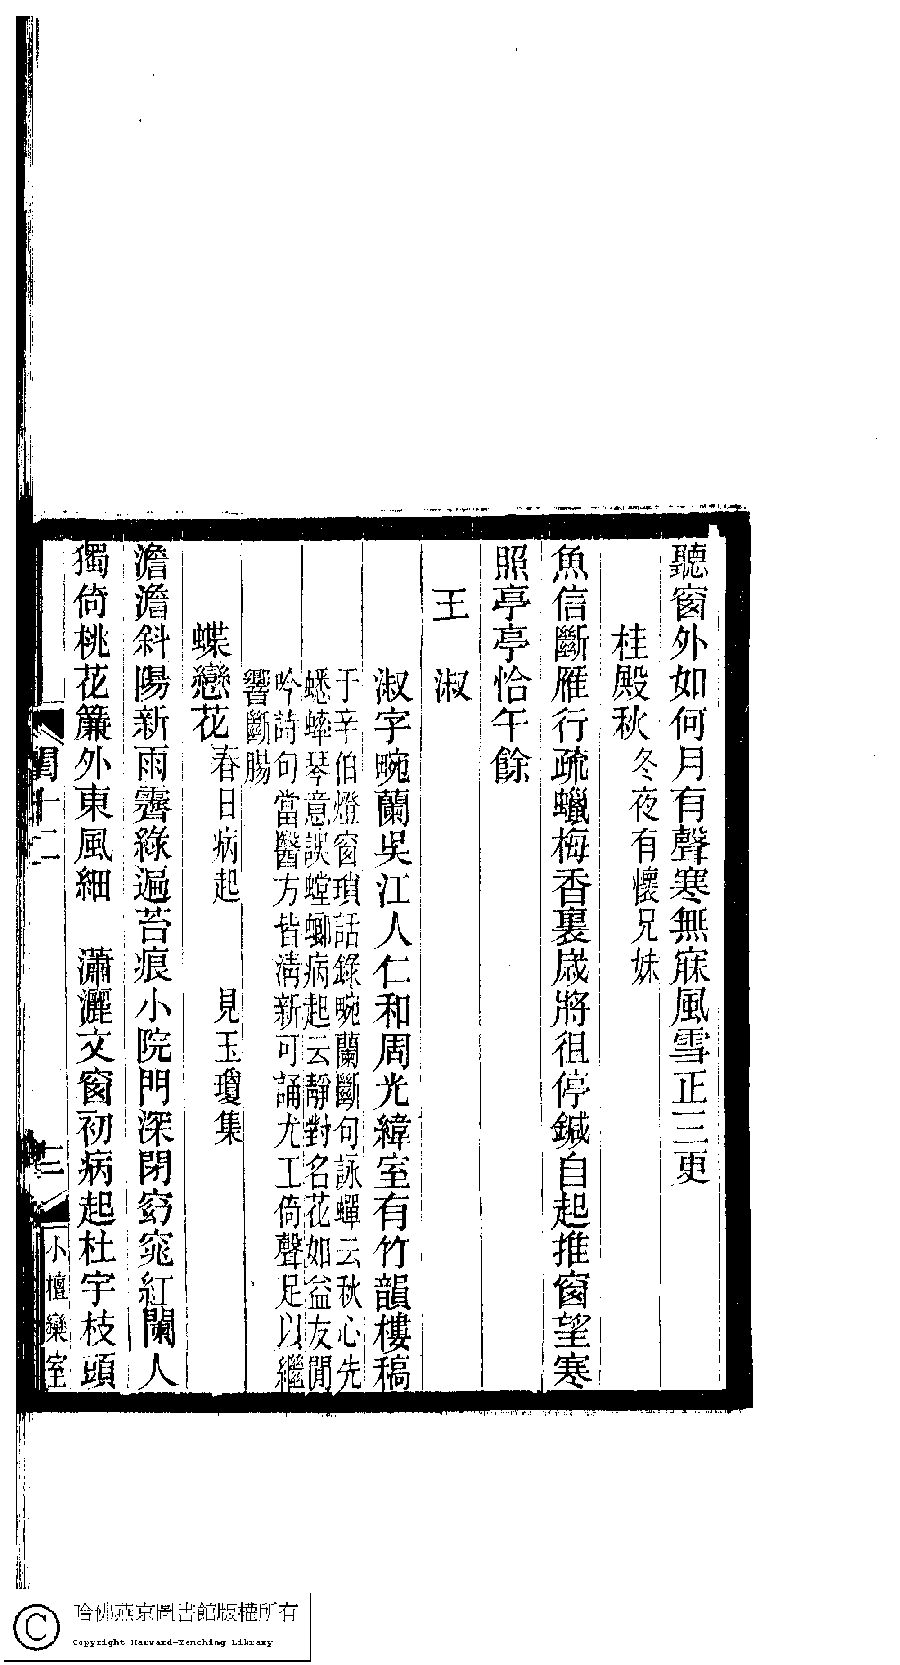 聽窗外如何月有聲寒無寐風雪正三更
桂殿秋冬夜有懷兄妹
魚信斷雁行疏蠟梅香裏歲將徂停鍼自起推窗望寒
照亭亭恰午餘
王淑
淑字畹蘭吳江人仁和周光緯室有竹韻樓稿
于辛伯燈窗瑣話錄畹蘭斷句詠蟬云秋心先
蟋蟀琴意誤螳螂病起云靜對名花如益友閒
吟詩句當醫方皆清新可誦尤工倚聲足以繼
響斷腸
蝶戀花春日病起 見玉瓊集
澹澹斜陽新雨霽綠遍苔痕小院門深閉窈窕紅闌人
獨倚桃花簾外東風細 瀟灑文窗初病起杜宇枝頭
閨十二
三
小檀欒室
哈佛燕京圖書館版權所有
Copyright Harvard-Yenching Library